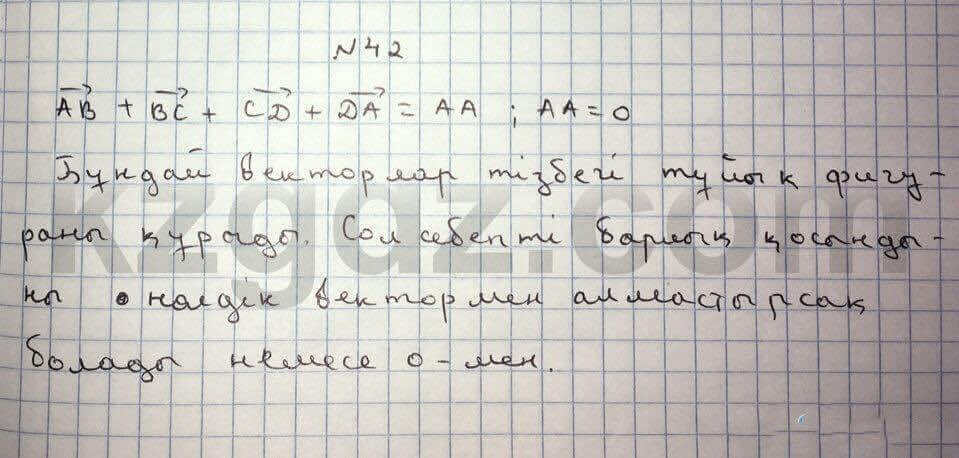 №42
AB + BC + CD + DA = AA ; AA = 0
Бұндай векторлар тізбегі тұйық фигу-
раны құрады. Сол себепті барлық қосынды-
ны нөлдік вектормен алмастырсақ
болады немесе 0-мен.
kzgdz.com